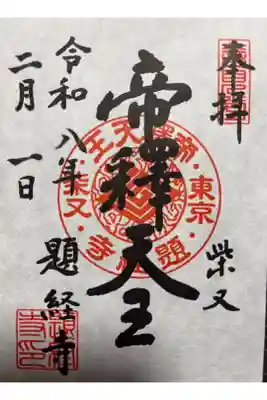 奉拝
柴又
帝釋天王
令和八年
題経寺
二月一日
帝釋天王・東京・題経寺・柴又・